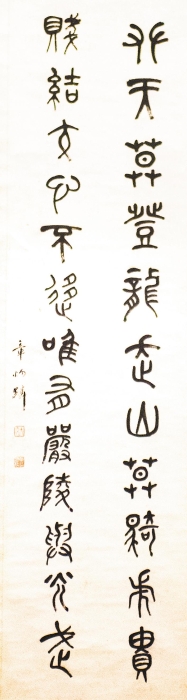 升天莫登龍走山莫騎虎貴
賤結交心不迻唯有嚴陵與光武
章炳麟